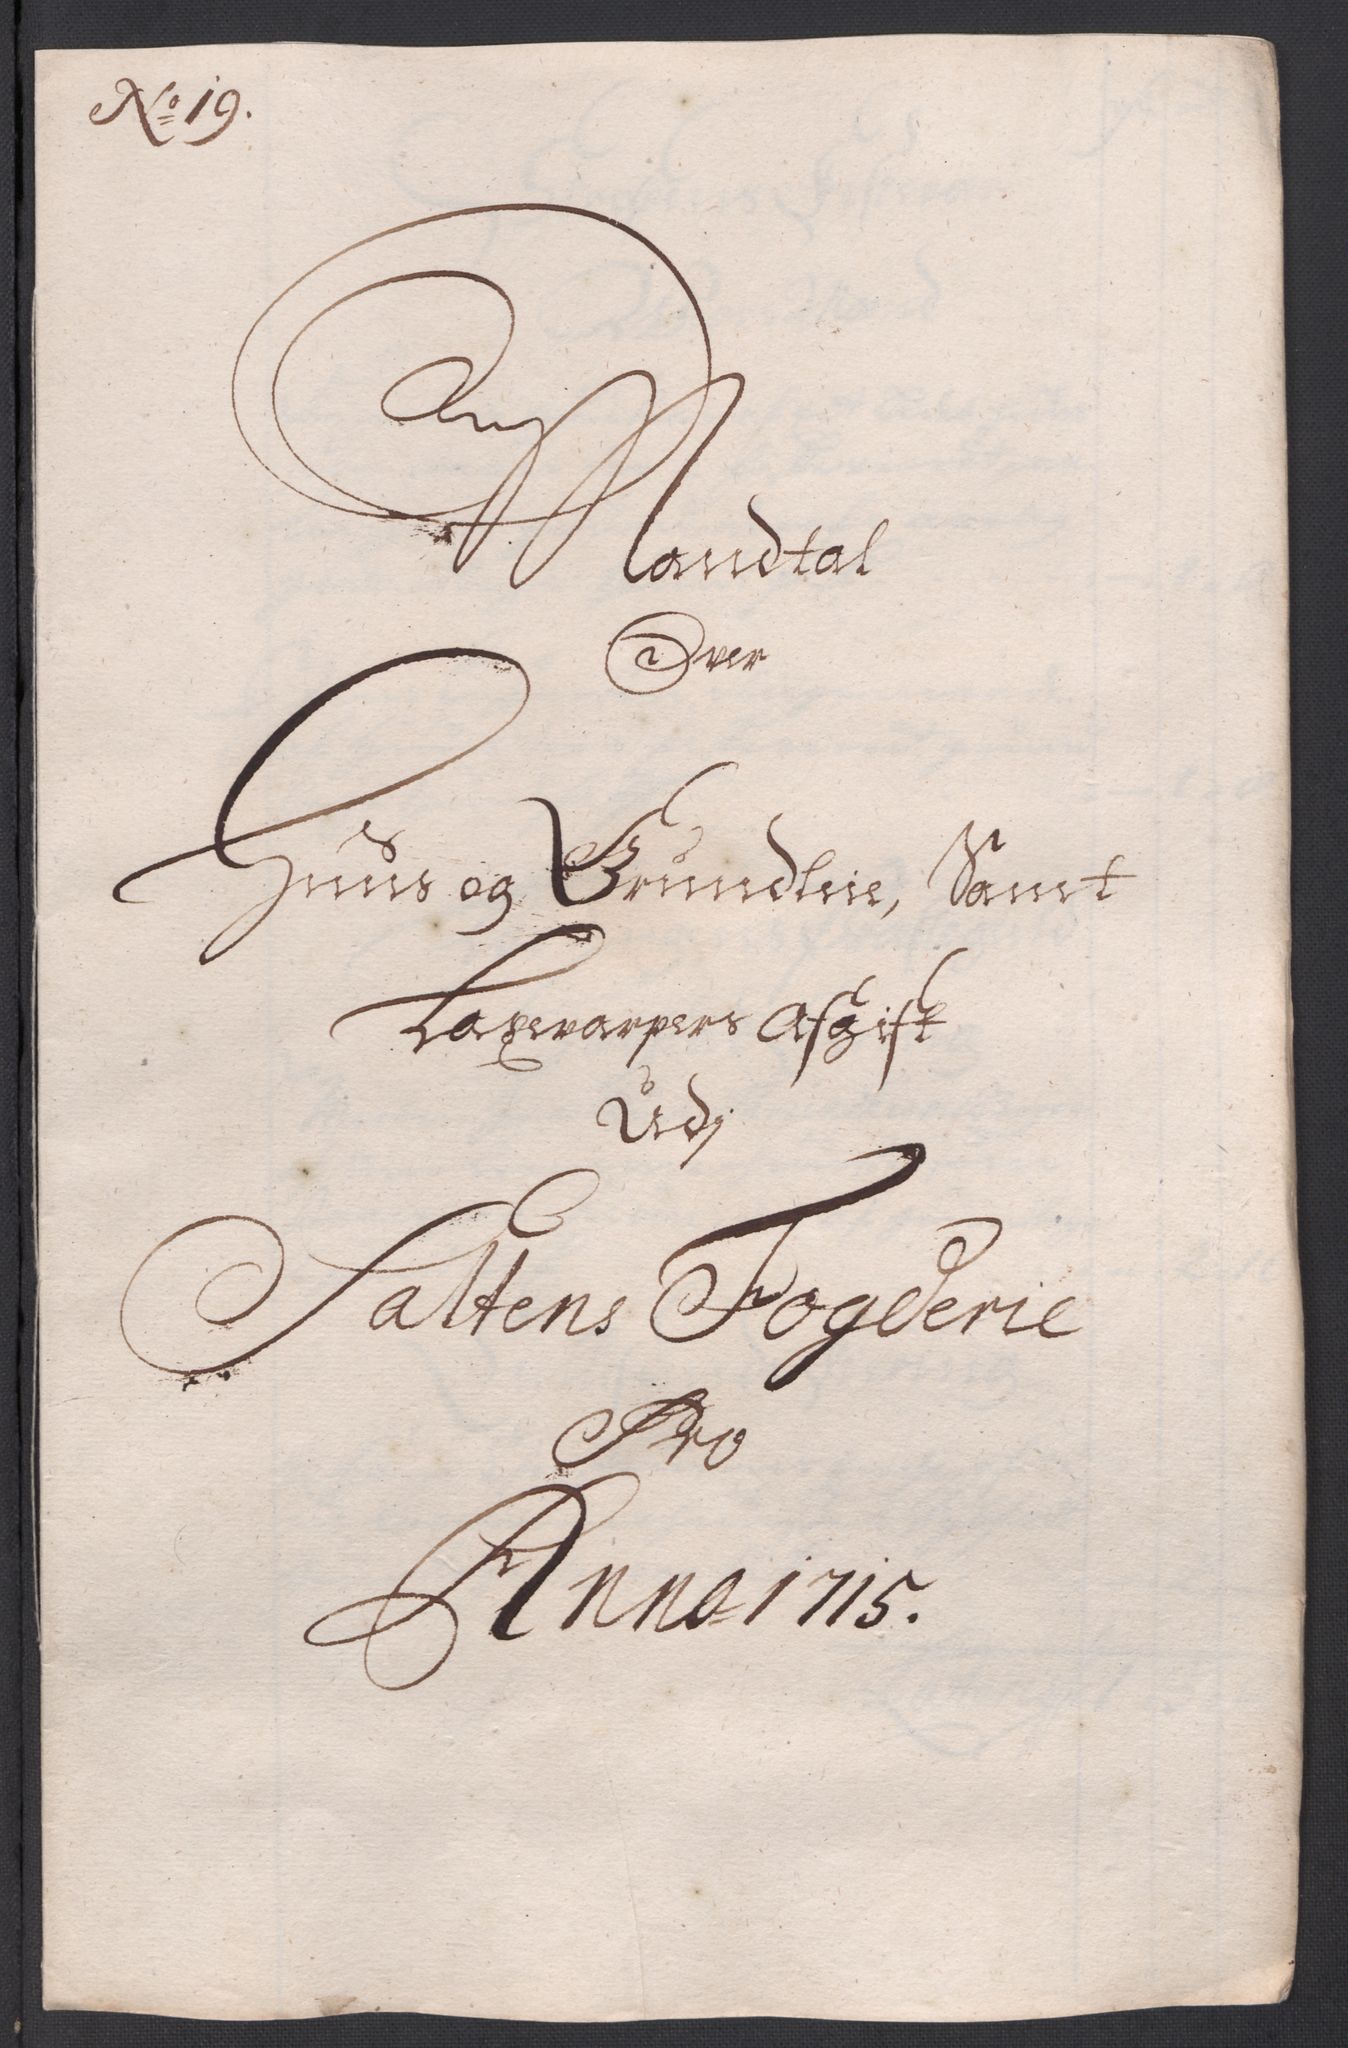 No 19.
Mandtal
Over
Huus og Grundleie, Samt
Laxevarpers Afgift
Udj
Saltens Fogderie
Pro
Anno 1715.